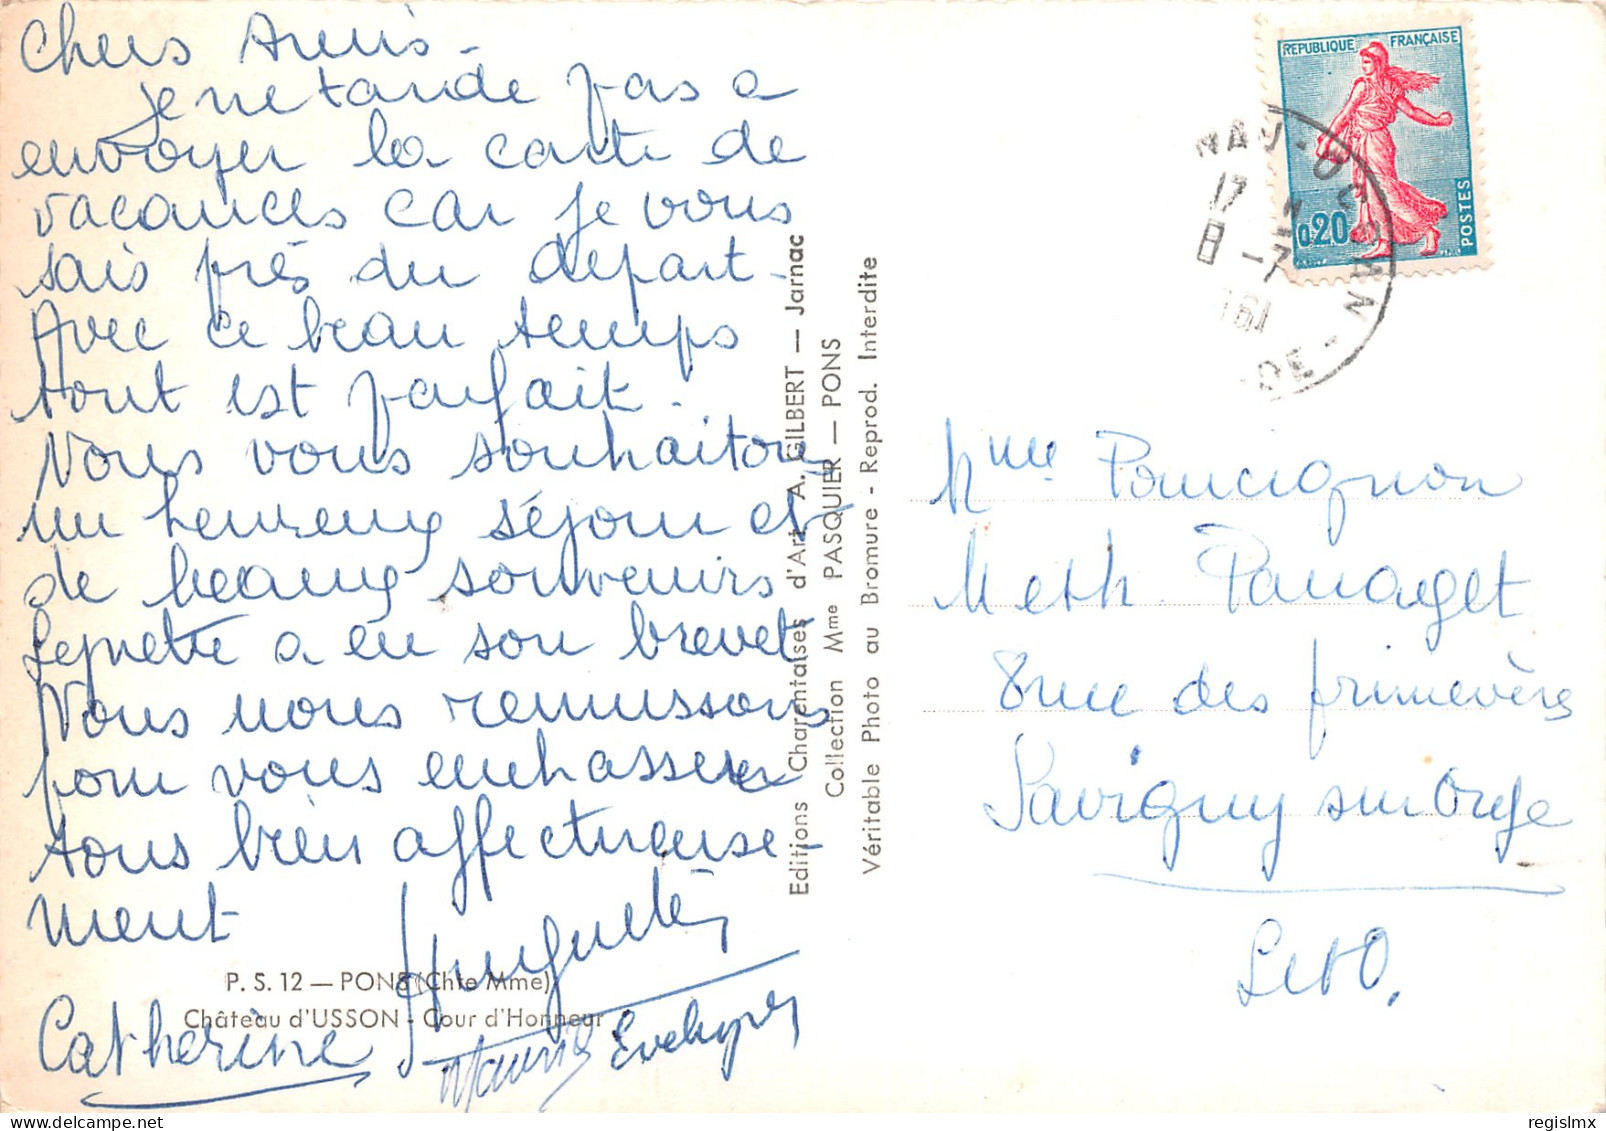 Chers Amis -
je ne tarde pas a
envoyer la carte de
vacances car je vous
sais près du départ -
Avec ce beau temps
tout est parfait -
Nous vous souhaitons
un heureux séjour et
de beaux souvenirs
a eu son brevet
Nous nous remissons
pour vous embrasser
tous bien affectueuse-
ment
Huguette
P. S. 12 — PONS (Chte Mme)
Château d'USSON - Cour d'Honneur
Catherine
Maurice
Evelyne
Editions Charentaises d'Art A. GILBERT — Jarnac
Collection Mme PASQUIER — PONS
Véritable Photo au Bromure - Reprod. Interdite
REPUBLIQUE FRANÇAISE
0,20
POSTES
17 H
8 -7
1961
DE -
Mme
Meth.
8 rue des primevères
Savigny sur Orge
S et O.
regislmx